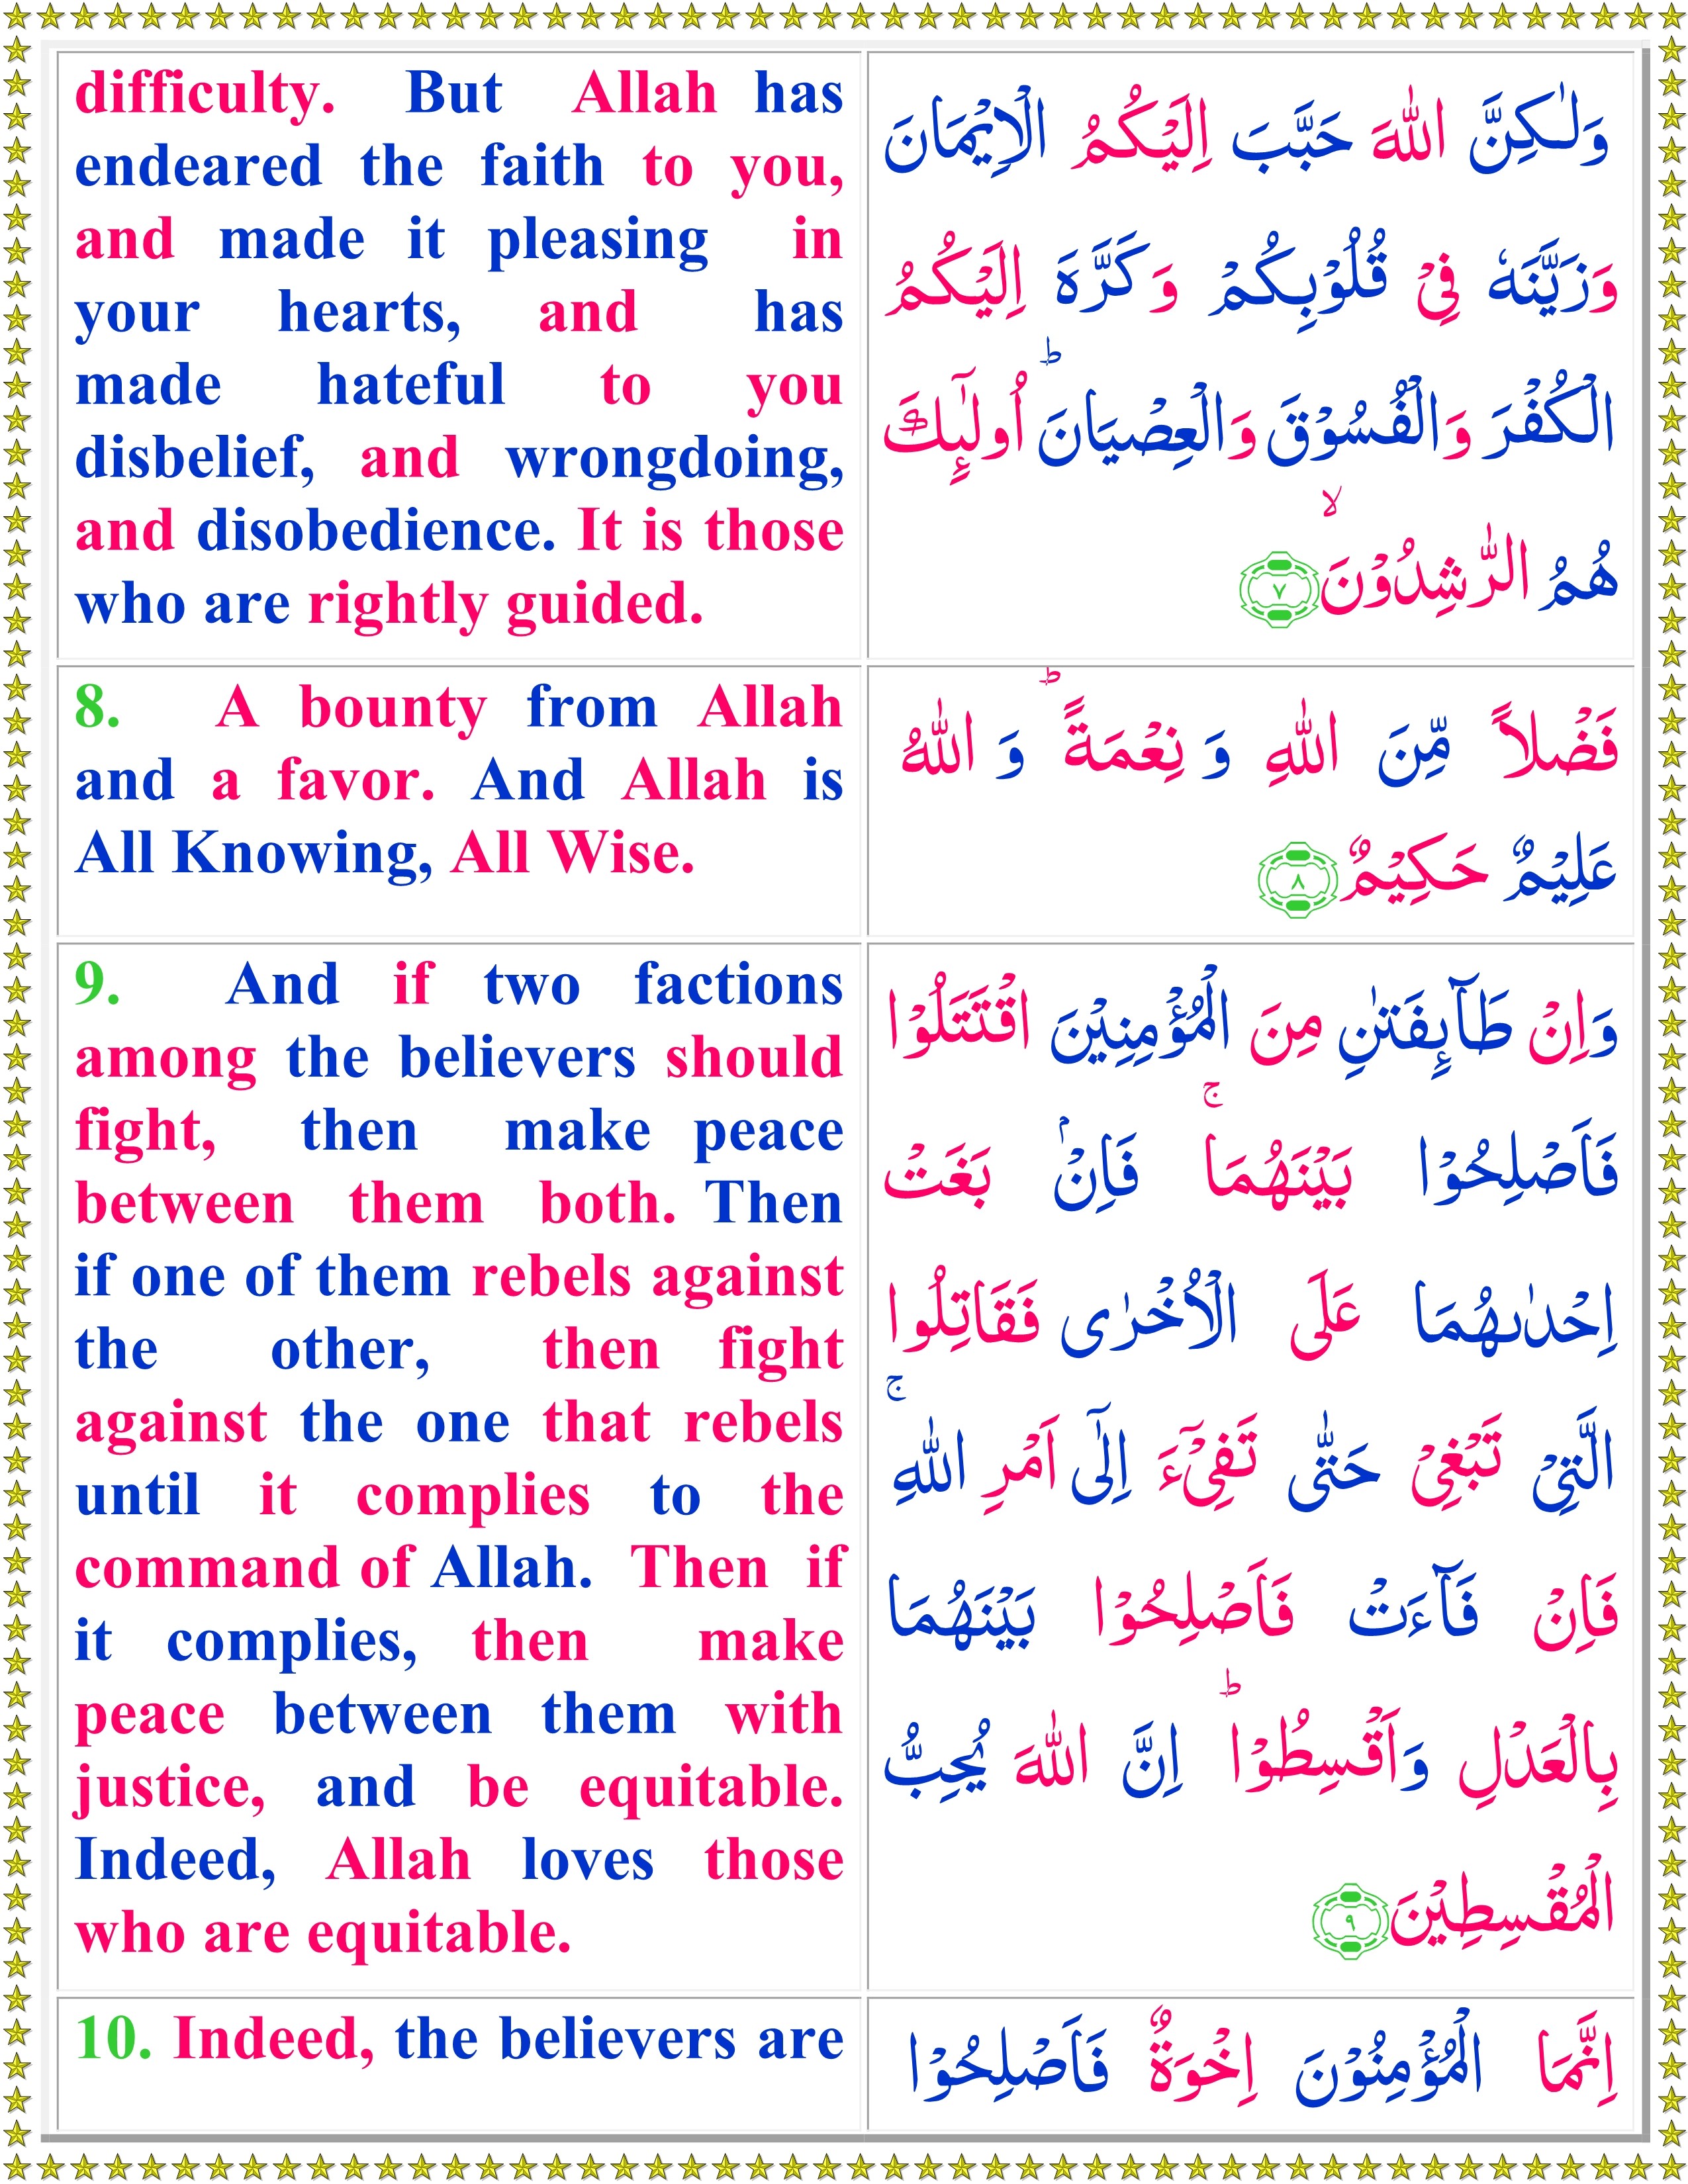 difficulty. But Allah has
endeared the faith to you,
and made it pleasing in
your hearts, and has
made hateful to you
disbelief, and wrongdoing,
and disobedience. It is those
who are rightly guided.
وَلٰـكِنَّ اللّٰهَ حَبَّبَ اِلَيْكُمُ الْاِيْمَانَ
وَزَيَّنَهٗ فِىْ قُلُوْبِكُمْ وَكَرَّهَ اِلَيْكُمُ
الْكُفْرَ وَالْفُسُوْقَ وَالْعِصْيَانَ ؕ اُولٰٓٮِٕكَ
هُمُ الرّٰشِدُوْنَ ۙ ﴿۷﴾
8. A bounty from Allah
and a favor. And Allah is
All Knowing, All Wise.
فَضْلاً مِّنَ اللّٰهِ وَ نِعْمَةً ؕ وَ اللّٰهُ
عَلِيْمٌ حَكِيْمٌ ﴿۸﴾
9. And if two factions
among the believers should
fight, then make peace
between them both. Then
if one of them rebels against
the other, then fight
against the one that rebels
until it complies to the
command of Allah. Then if
it complies, then make
peace between them with
justice, and be equitable.
Indeed, Allah loves those
who are equitable.
وَاِنْ طَآٮِٕفَتٰنِ مِنَ الْمُؤْمِنِيْنَ اقْتَتَلُوْا
فَاَصْلِحُوْا بَيْنَهُمَا ۚ فَاِنْۢ بَغَتْ
اِحْدٰٮهُمَا عَلَى الْاُخْرٰى فَقَاتِلُوا
الَّتِىْ تَبْغِىْ حَتّٰى تَفِىْٓءَ اِلٰٓى اَمْرِ اللّٰهِ ۚ
فَاِنْ فَآءَتْ فَاَصْلِحُوْا بَيْنَهُمَا
بِالْعَدْلِ وَاَقْسِطُوْا ؕ اِنَّ اللّٰهَ يُحِبُّ
الْمُقْسِطِيْنَ ﴿۹﴾
10. Indeed, the believers are
اِنَّمَا الْمُؤْمِنُوْنَ اِخْوَةٌ فَاَصْلِحُوْا